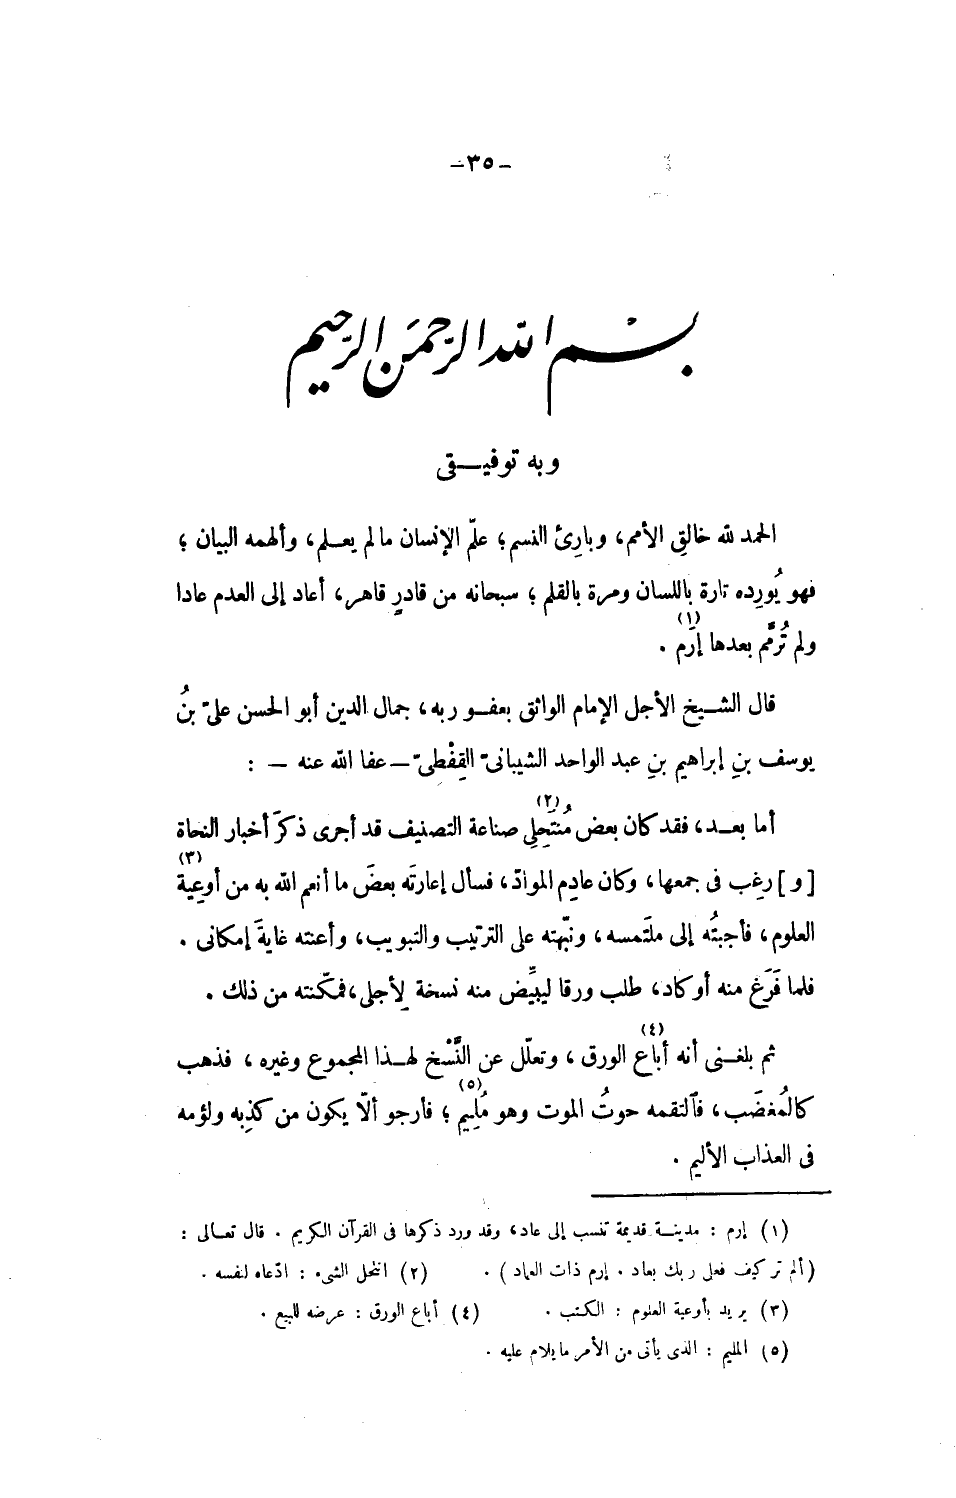 -٣٥-
بسم الله الرحمن الرحيم
وبه توفيقى
الحمد لله خالقِ الأمم، وبارِئ النسم؛ علّم الإنسان ما لم يعلم، وألهمه البيان؛
فهو يُورِده تارة باللسان ومرة بالقلم؛ سبحانه من قادرٍ قاهر، أعاد إلى العدم عادا
ولم تُرمَّم بعدها إرَم(١).
قال الشيخ الأجل الإمام الواثق بعفو ربه، جمال الدين أبو الحسن علىّ بنُ
يوسف بنِ إبراهيم بنِ عبد الواحد الشيبانىّ القِفْطِىّ – عفا الله عنه – :
أما بعد، فقد كان بعض مُنتَحِلِى(٢) صناعة التصنيف قد أجرى ذكرَ أخبار النحاة
[و] رغِب فى جمعها، وكان عادِم الموادّ، فسأل إعارتَه بعضَ ما أنعم الله به من أوعِية(٣)
العلوم، فأجبتُه إلى ملتَمسه، ونبّهته على الترتيب والتبويب، وأعنته غايةَ إمكانى.
فلما فَرَغ منه أو كاد، طلب ورقا ليبيِّض منه نسخة لِأجلى، فمكّنته من ذلك.
ثم بلغنى أنه أباع(٤) الورق، وتعلّل عن النَّسْخ لهذا المجموع وغيره، فذهب
كالمُغضَب، فٱلتقمه حوتُ الموت وهو مُلِيم(٥)؛ فأرجو ألّا يكون من كذبِه ولؤمه
فى العذاب الأليم.
(١) إرم : مدينة قديمة تنسب إلى عاد، وقد ورد ذكرها فى القرآن الكريم. قال تعالى :
(ألم تر كيف فعل ربك بعاد. إرم ذات العماد). (٢) انتحل الشىء : ادّعاه لنفسه.
(٣) يريد بأوعية العلوم : الكتب. (٤) أباع الورق : عرضه للبيع.
(٥) المليم : الذى يأتى من الأمر ما يلام عليه.